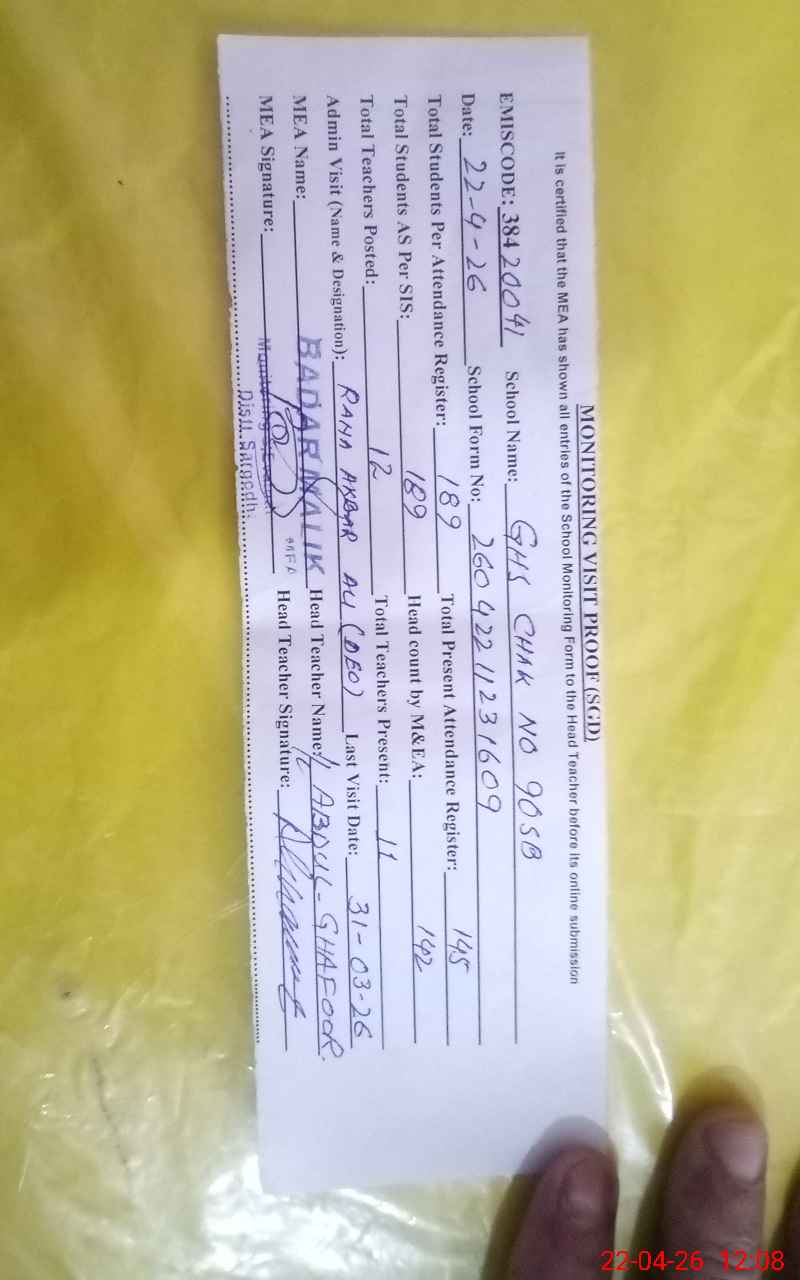 MONITORING VISIT PROOF (SGD)
It is certified that the MEA has shown all entries of the School Monitoring Form to the Head Teacher before its online submission
EMISCODE: 38420041 School Name: GHS CHAK NO 90SB
Date: 22-4-26 School Form No: 26042211231609
Total Students Per Attendance Register: 189 Total Present Attendance Register: 145
Total Students AS Per SIS: 189 Head count by M&EA: 142
Total Teachers Posted: 12 Total Teachers Present: 11
Admin Visit (Name & Designation): RANA AKBAR ALI (DEO) Last Visit Date: 31-03-26
MEA Name: BADAR MALIK Head Teacher Name: ABDUL-GHAFOOR
MEA Signature: Head Teacher Signature:
Distt. Sargodh
22-04-26 12:08